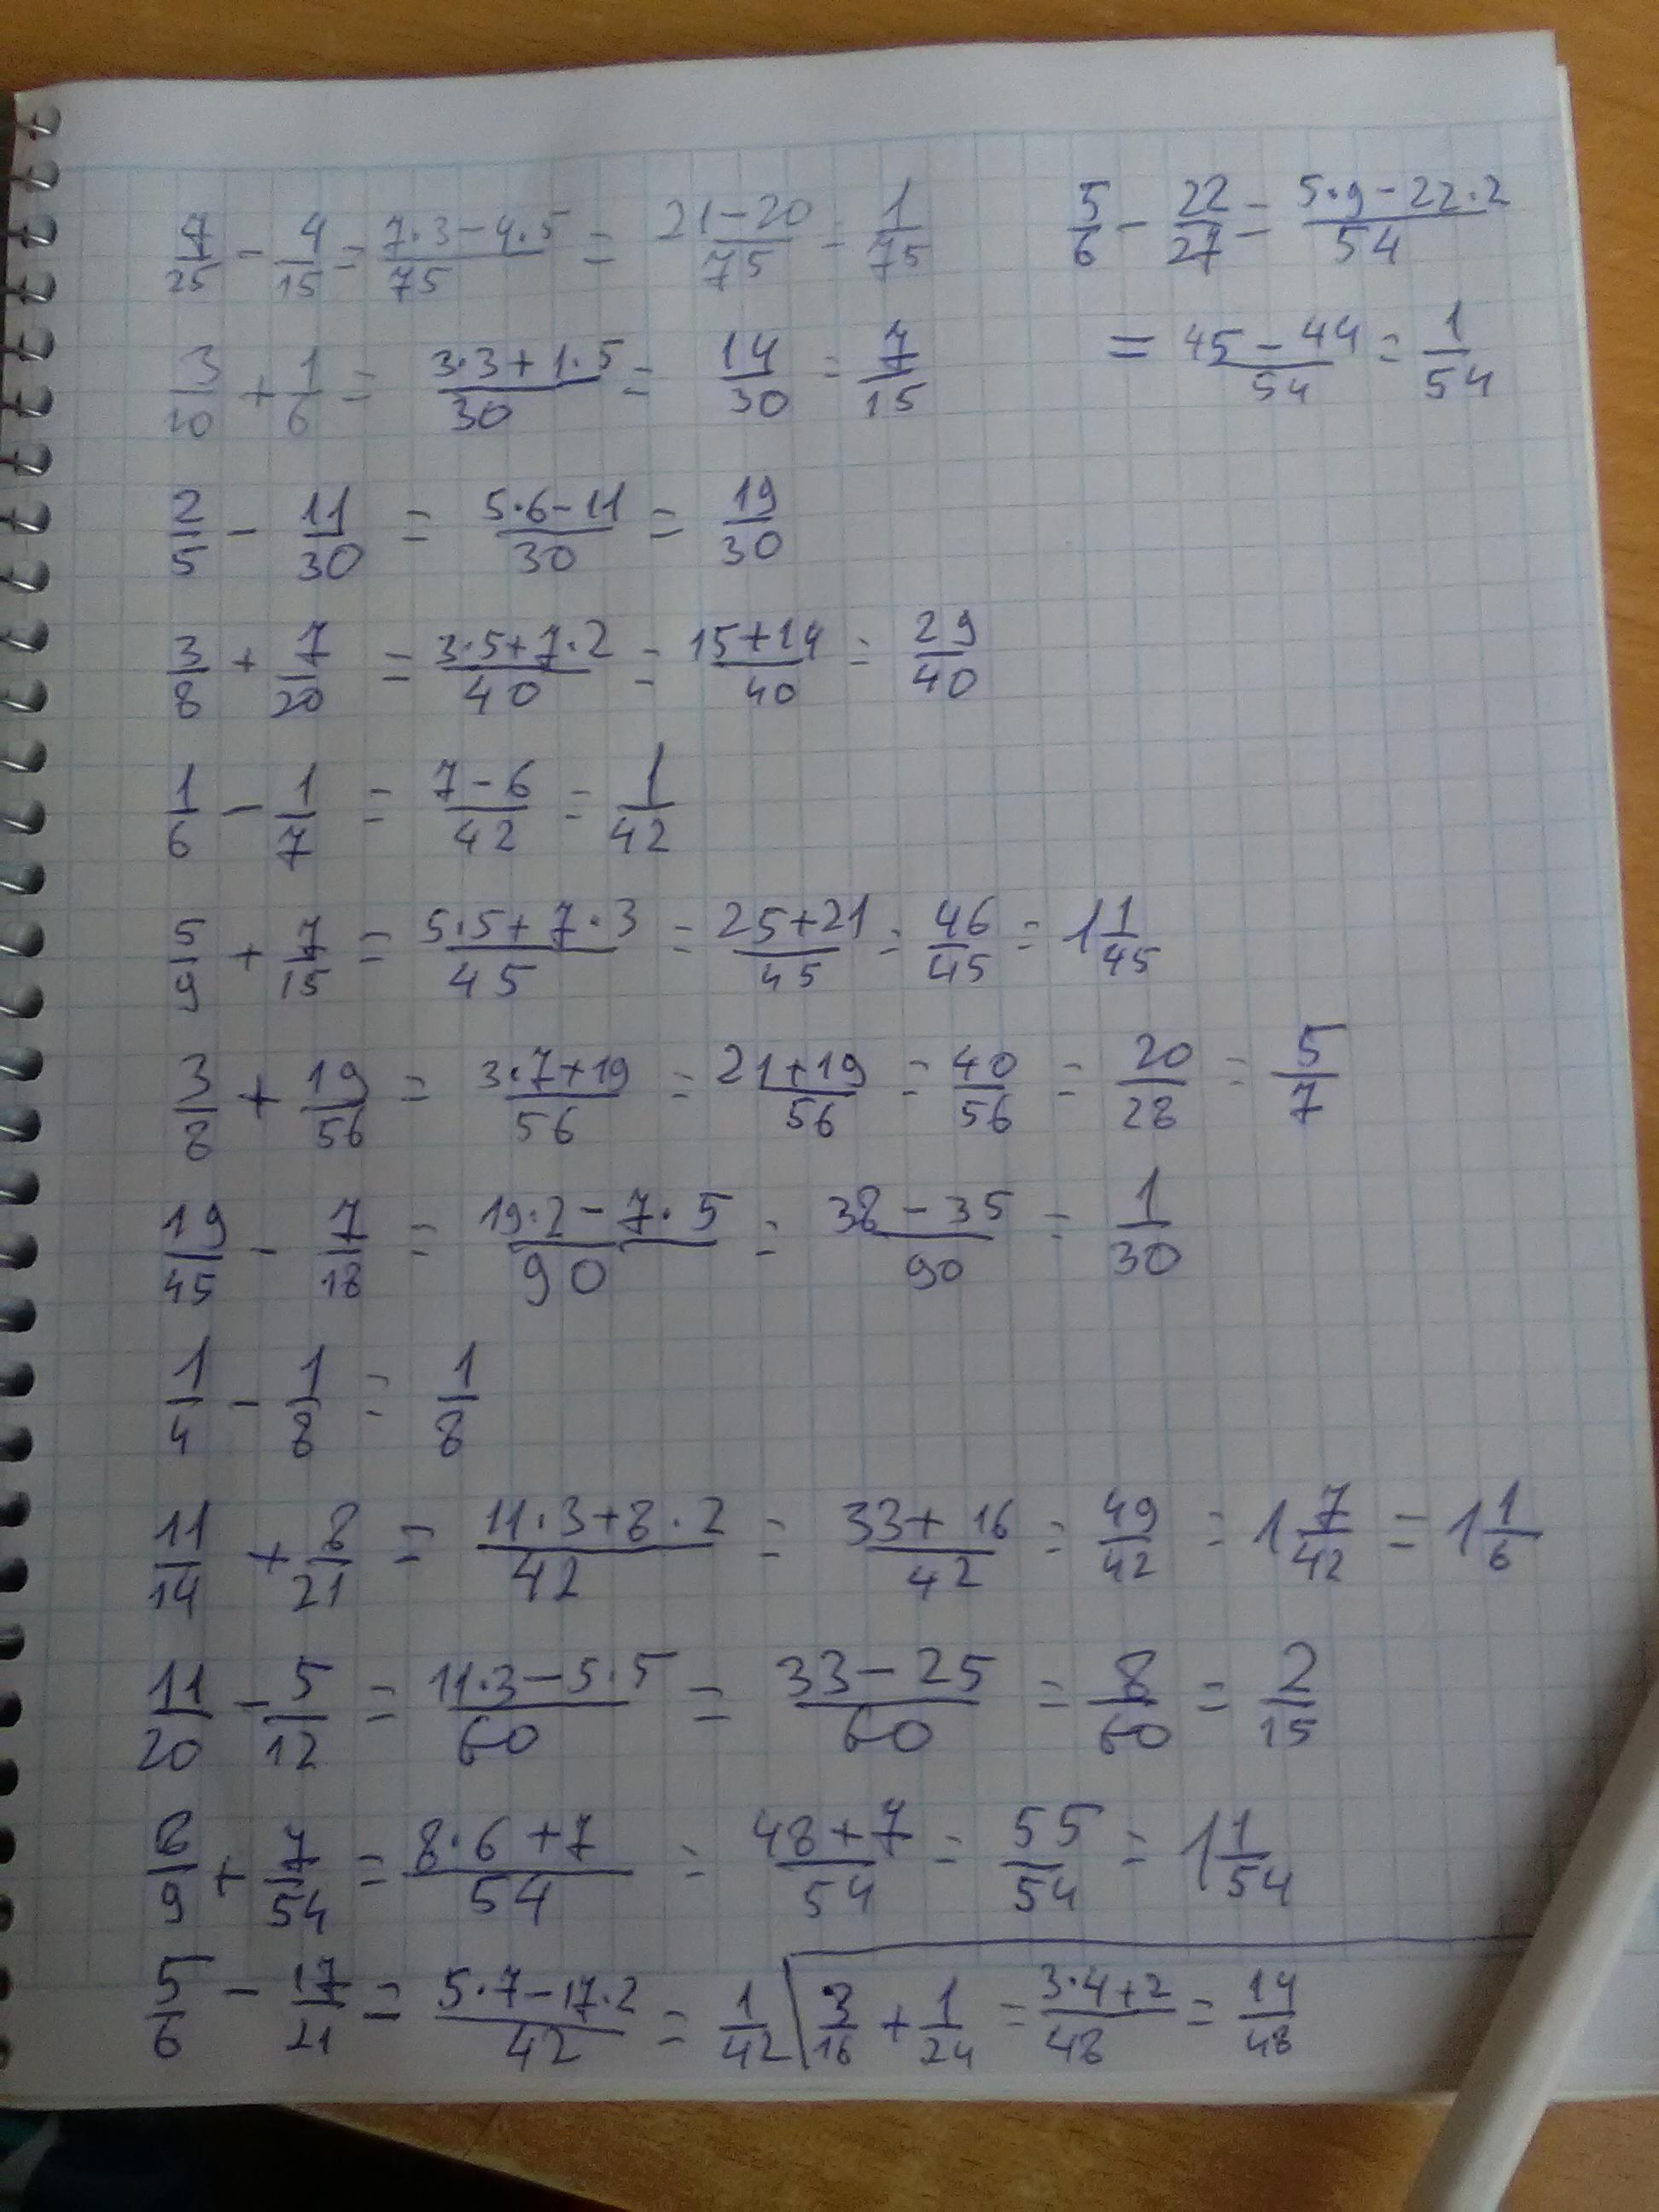 7/25 - 4/15 = (7·3-4·5)/75 = (21-20)/75 = 1/75
3/10 + 1/6 = (3·3+1·5)/30 = 14/30 = 7/15
2/5 - 11/30 = (5·6-11)/30 = 19/30
3/8 + 7/20 = (3·5+7·2)/40 = (15+14)/40 = 29/40
1/6 - 1/7 = (7-6)/42 = 1/42
5/9 + 7/15 = (5·5+7·3)/45 = (25+21)/45 = 46/45 = 1 1/45
3/8 + 19/56 = (3·7+19)/56 = (21+19)/56 = 40/56 = 20/28 = 5/7
19/45 - 7/18 = (19·2-7·5)/90 = (38-35)/90 = 1/30
1/4 - 1/8 = 1/8
11/14 + 8/21 = (11·3+8·2)/42 = (33+16)/42 = 49/42 = 1 7/42 = 1 1/6
11/20 - 5/12 = (11·3-5·5)/60 = (33-25)/60 = 8/60 = 2/15
8/9 + 7/54 = (8·6+7)/54 = (48+7)/54 = 55/54 = 1 1/54
5/6 - 17/21 = (5·7-17·2)/42 = 1/42
3/16 + 1/24 = (3·4+2)/48 = 14/48
5/6 - 22/27 = (5·9-22·2)/54
= (45-44)/54 = 1/54